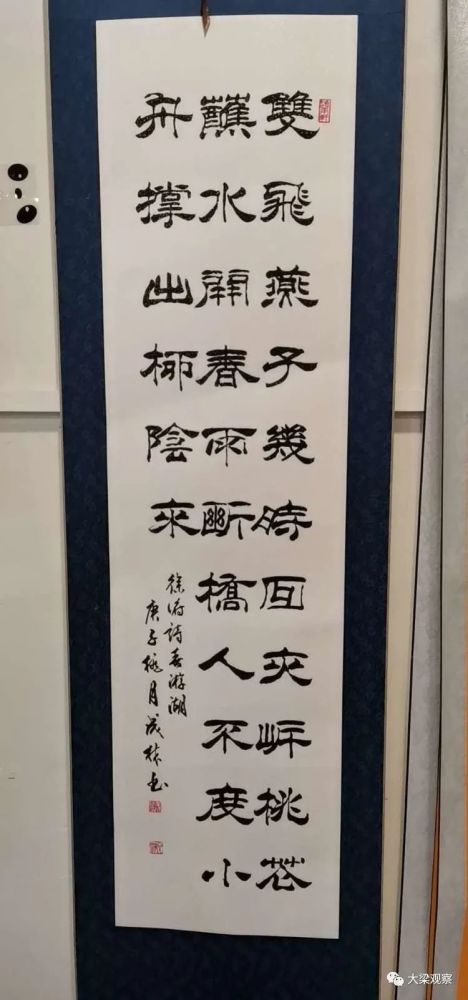 雙飛燕子幾時回夾岸桃花
蘸水開春雨斷橋人不度小
舟撐出柳陰來
徐俯詩春游湖
庚子桃月成林书
大梁观察